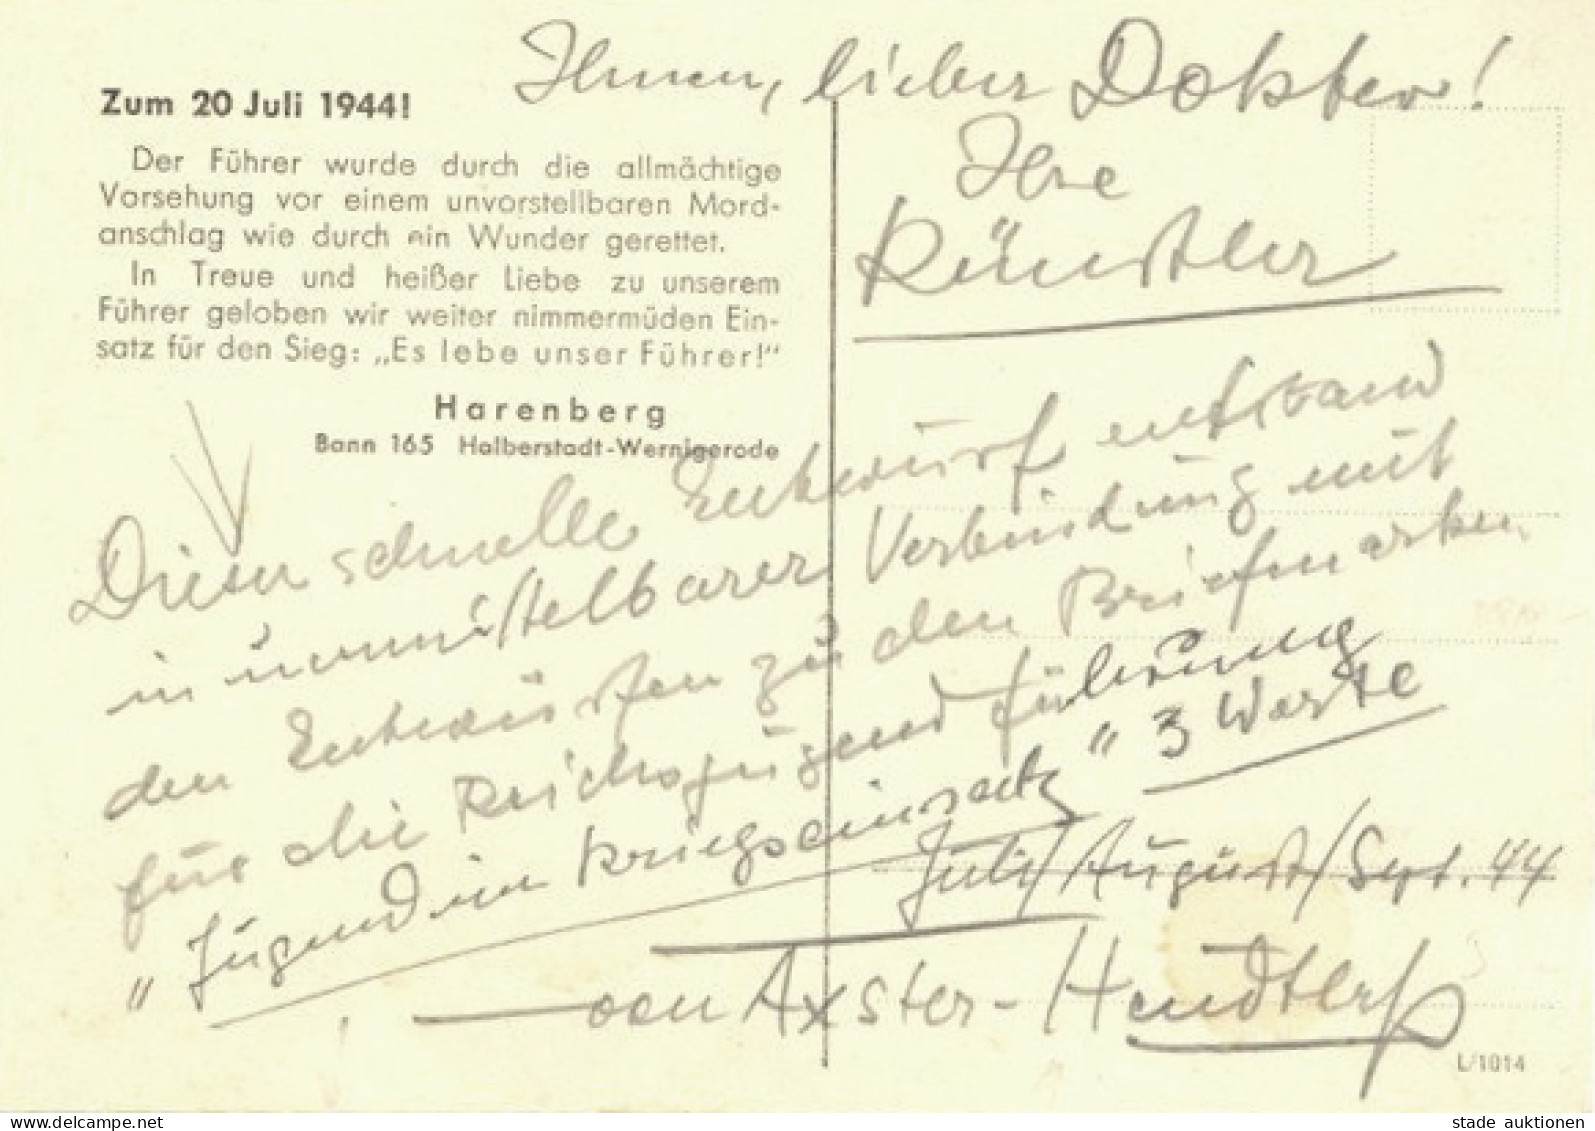 Ihnen, lieber Doktor!
Ihre
Künstler
Zum 20 Juli 1944!
Der Führer wurde durch die allmächtige
Vorsehung vor einem unvorstellbaren Mord-
anschlag wie durch ein Wunder gerettet.
In Treue und heißer Liebe zu unserem
Führer geloben wir weiter nimmermüden Ein-
satz für den Sieg: „Es lebe unser Führer!"
Harenberg
Bann 165 Halberstadt-Wernigerode
Dieser schnelle Entwurf entstand
in unmittelbarer Verbindung mit
den Entwürfen zu den Briefmarken
für die Reichsjugendführung
"Jugend im Kriegseinsatz" 3 Werte
Juli/August/Sept. 44
von Axster-Heudtlaß
L/1014
www.delcampe.net
stade auktionen